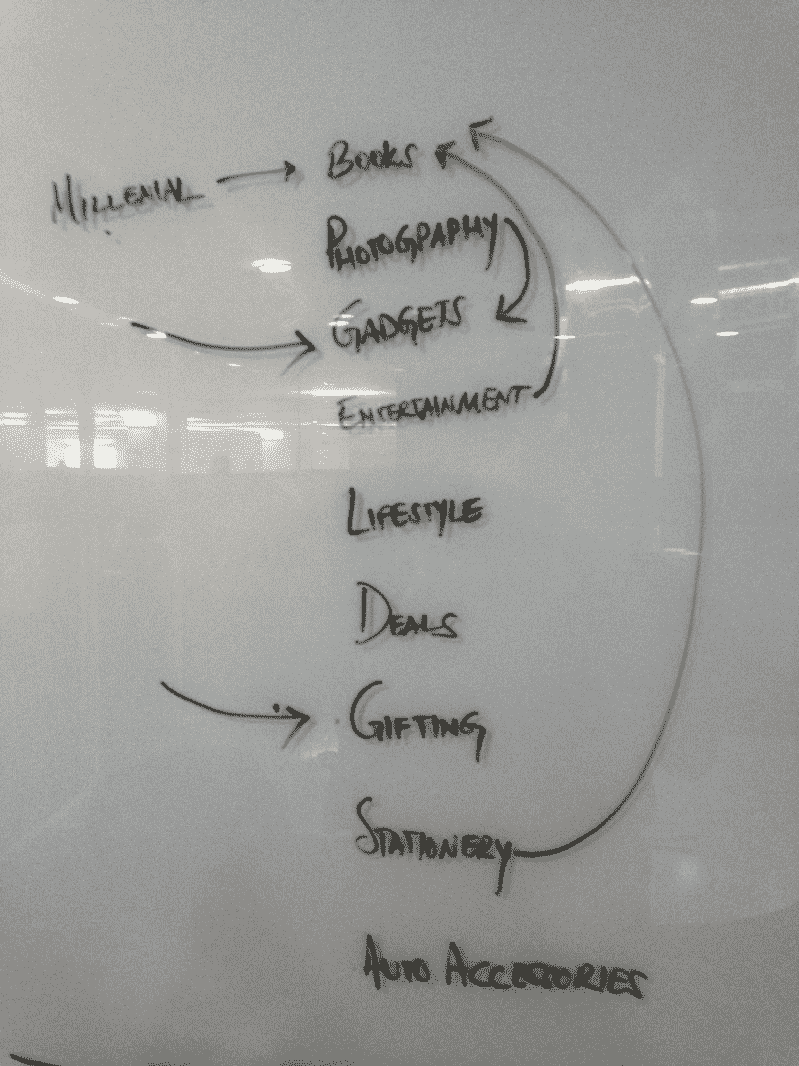 MILLENIAL → BOOKS
PHOTOGRAPHY
GADGETS
ENTERTAINMENT
LIFESTYLE
DEALS
GIFTING
STATIONERY
AUTO ACCESSORIES